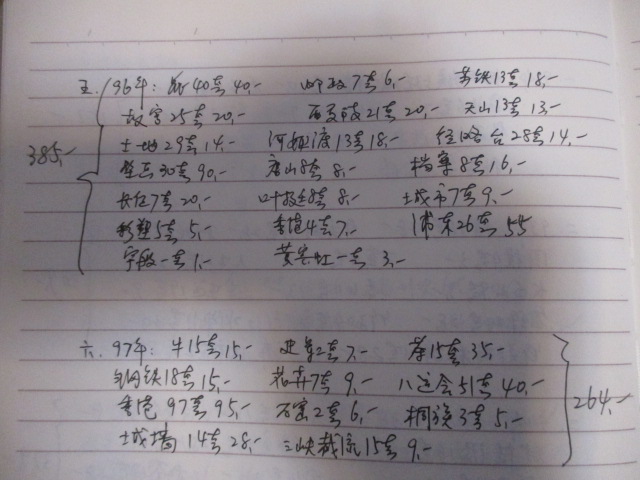 五. 96年: 鼠40套 40,- 邮政7套 6,- 苏铁13套 18,-
故宫25套 20,- 西夏陵21套 20,- 天山13套 13,-
385,- 土地29套 14,- 河姆渡13套 18,- 经略台28套 14,-
奥运30套 90,- 唐山8套 8,- 档案8套 16,-
长征7套 20,- 叶挺8套 8,- 上城市7套 9,-
彩塑5套 5,- 香港4套 7,- 浦东26套 55
宇航一套 1,- 黄宾虹一套 3,-
六. 97年: 牛15套 15,- 迎客2套 7,- 茶15套 35,-
钢铁18套 15,- 花卉7套 9,- 八运会51套 40,-
香港97套 95,- 石窟2套 6,- 侗族3套 5,- 264,-
土城墙14套 28,- 三峡截流15套 9,-